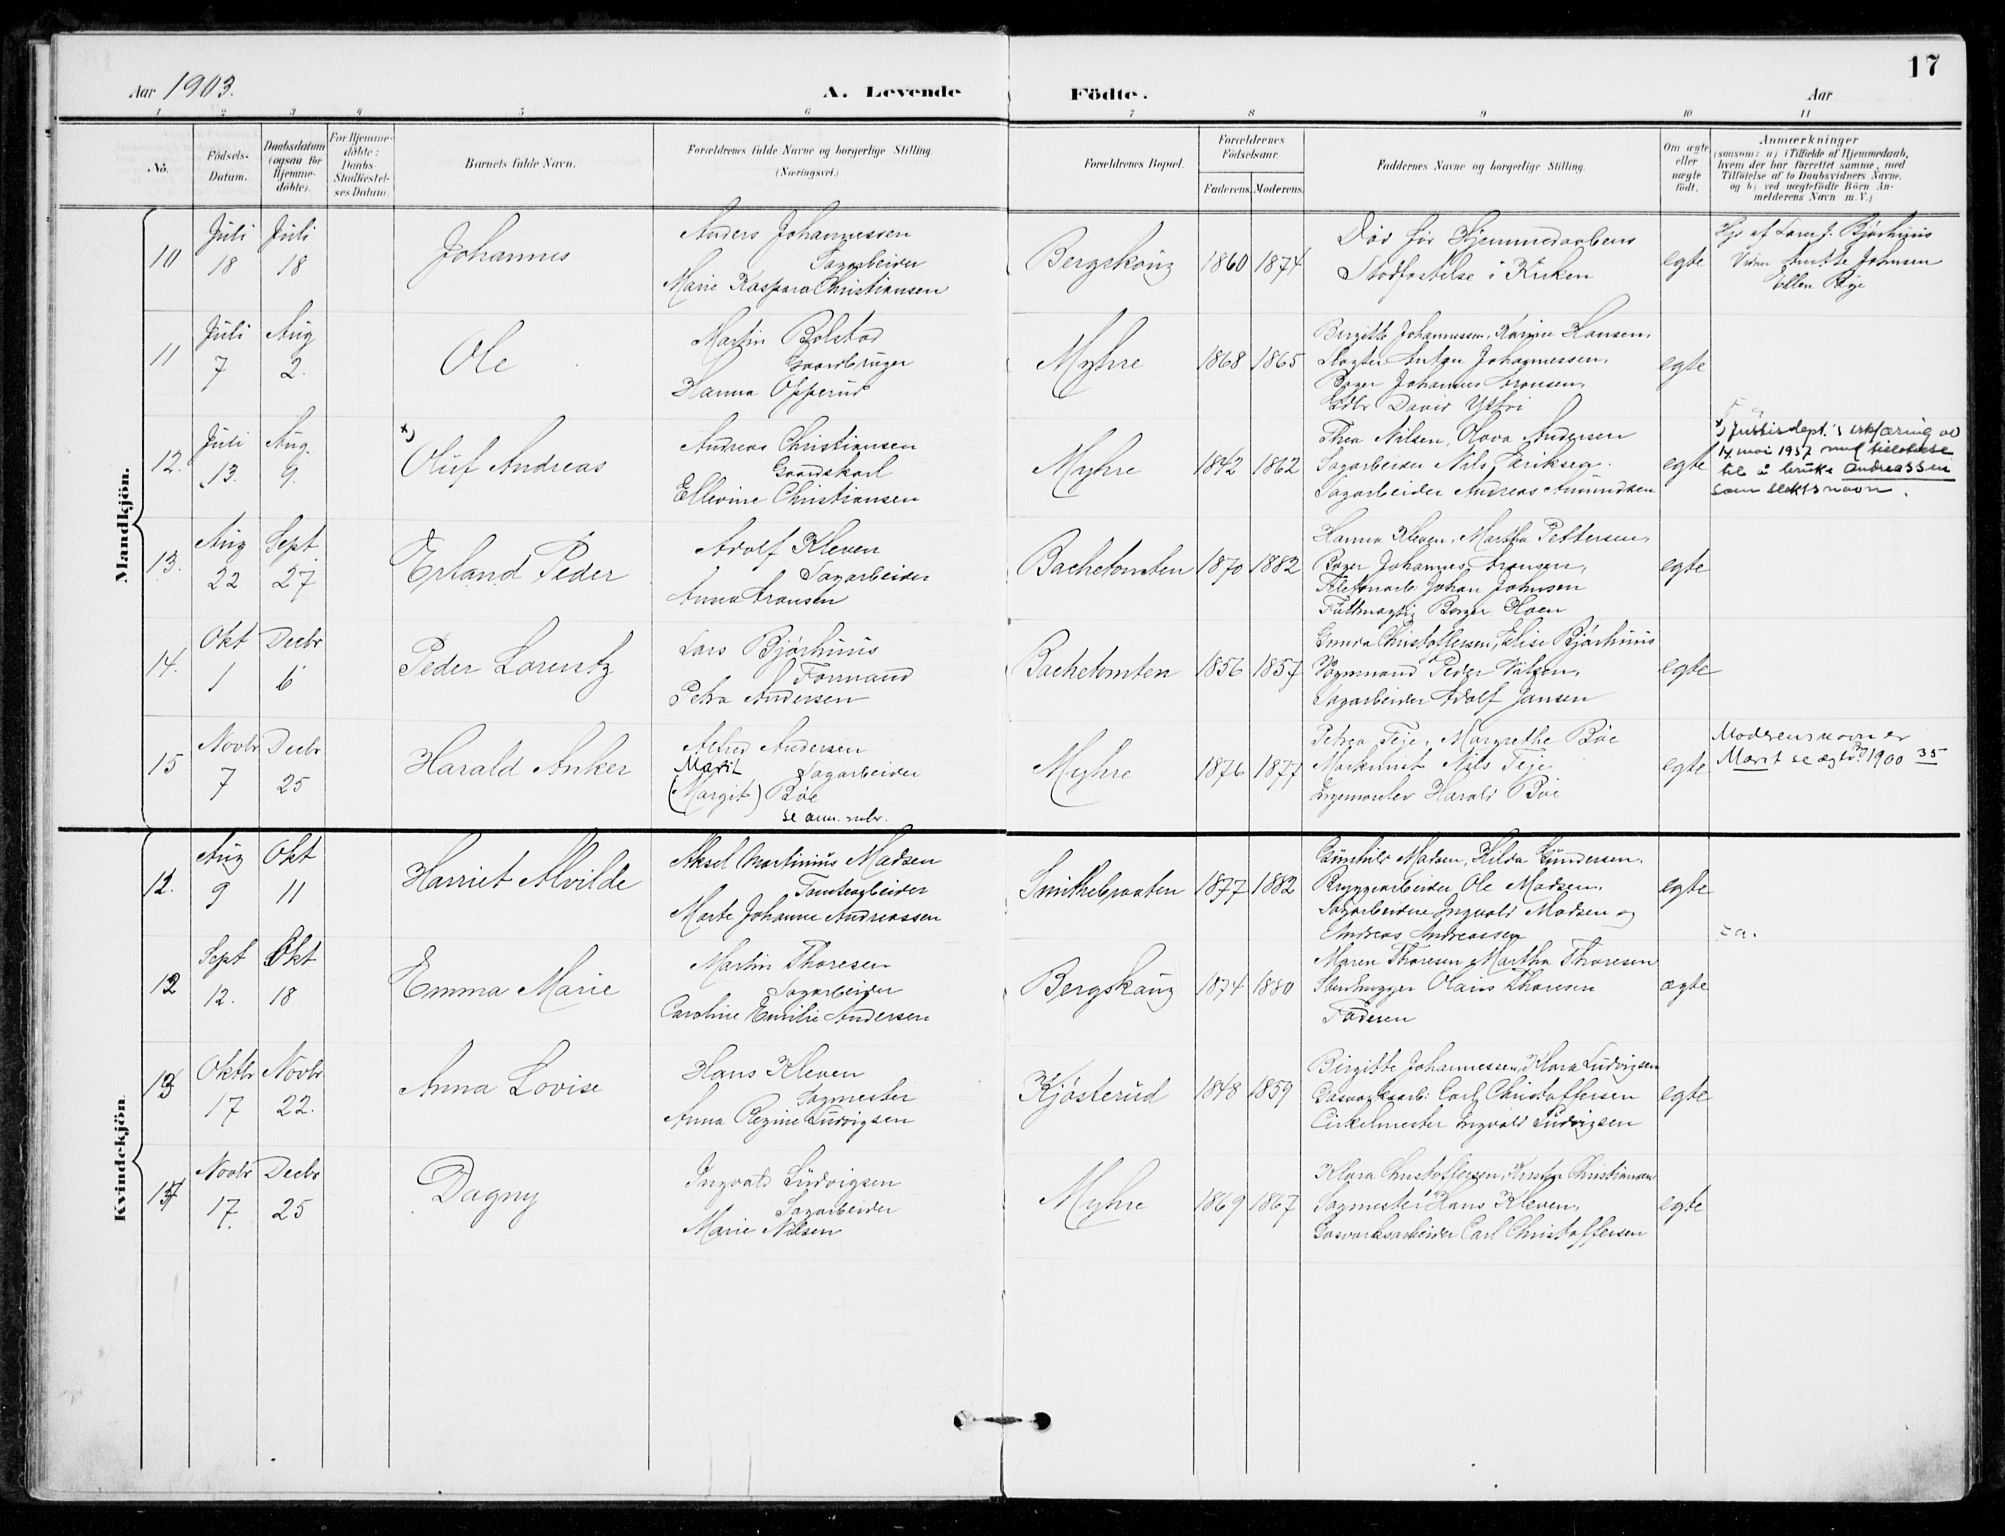 17
Aar 1903. A. Levende Födte. Aar
1 2 3 4 5 6 7 8 9 10 11
No.
Födsels-
Datum.
Daabsdatum
(ogsaa for
Hjemme-
döbte).
For Hjemme-
döbte:
Daabs-
Stadfæstel-
ses Datum.
Barnets fulde Navn.
Forældrenes fulde Navne og borgerlige Stilling.
(Næringsvei.)
Forældrenes Bopæl.
Forældrenes
Födselsaar.
Faderens. Moderens.
Faddernes Navne og borgerlige Stilling.
Om ægte
eller
uægte
födt.
Anmærkninger
(saasom: a) i Tilfælde af Hjemmedaab,
hvem der har forrettet samme, med
Tilföielse af to Daabsvidners Navne,
og b) ved uægtefödte Börn An-
melderens Navn m. V.)
Mandkjön.
10
Juli
18
Juli
18
Johannes
Anders Johannessen
Sagarbeider
Marie Kaspara Christiansen
Bergskoug
1860 1874
Död för Hjemmedaabens
Stadfæstelse i Kirken
egte
Hjd af Lars J. Bjørhuus
Johnsen
Ellen
11
Juli
7
Aug
2.
Ole
Martin Bolstad
Gaardbruger
Hanna Opperud
Myhre
1868 1865
Bergitte Johannessen, Karine Hansen,
Slagter Anton Johannessen,
Bager Johannes Aronsen,
Gdbr David
egte
12.
Juli
13.
Aug.
9.
x)
Oluf Andreas
Andreas Christiansen
Gaardskarl
Ellevine Christiansen
Myhre
1842 1862
Thea Nilsen, Olava Andersen
Sagarbeider Nils Eriksen.
Sagarbeider Andreas Amundsen
egte
x) Justisdept.'s erklæring av
14 mai 1937 med tillatelse
til å bruke Andreassen
som slektsnavn.
13.
Aug
22
Sept
27
Erland Peder
Adolf Kleven
Sagarbeider
Anna Aronsen
Bachetomten
1870 1882
Hanna Kleven, Martha Pettersen,
Bager Johannes Aronsen,
Telefonarb. Johan Johnsen
Fuldmægtig Borger Hoen
egte
14.
Okt
1
Decbr
6
Peder Lorentz
Lars Bjørhuus
Formand
Petra Andersen
Bachetomten
1856 1857
Gunda Christoffersen, Elise Bjørhuus
Vognmand Peder
Sagarbeider Adolf Jansen
egte
15
Novbr
7
Decbr
25
Harald Anker
Alfred Andersen
Marit Sagarbeider
(Margit) Böe
se anm. rubr.
Myhre
1876 1877
Petrea Teje, Margrethe Böe
Nils Teje
Harald Böe
egte
Moderens navn er
Marit se ægtb. 1900 35
Kvindekjön.
12.
Aug
9
Okt
11
Harriet Alvilde
Aksel Martinius Madsen
Tomtearbeider
Marte Johanne Andreassen
Smithebraaten
1877 1882
Gunhild Madsen, Hilda Gundersen,
Bryggearbeider Ole Madsen,
Sagarbeidere Ingvald Madsen og
Andreas Andreassen
egte
12
Sept
12.
Okt
18
Emma Marie
Martin Thoresen
Sagarbeider
Caroline Emilie Andersen
Bergskoug
1874 1880
Maren Thoresen, Martha Thoresen
Stenhugger Olaus Thoresen
Faderen
ægte
13
Oktbr
17
Novbr
22.
Anna Lovise
Hans Kleven
Sagmester
Anna Regine Ludvigsen
Kjösterud
1848 1859
Birgitte Johannessen, Klara Ludvigsen
Gasverksarb: Carl Christoffersen
Cirkelmester Ingvald Ludvigsen
egte
Novbr
17.
Decbr
25
Dagny
Ingvald Ludvigsen
Sagarbeider
Marie Nilsen
Myhre
1869 1867
Klara Christoffersen, Kirstine Christiansen
Sagmester Hans Kleven,
Gasverksarbeider Carl Christoffersen
egte